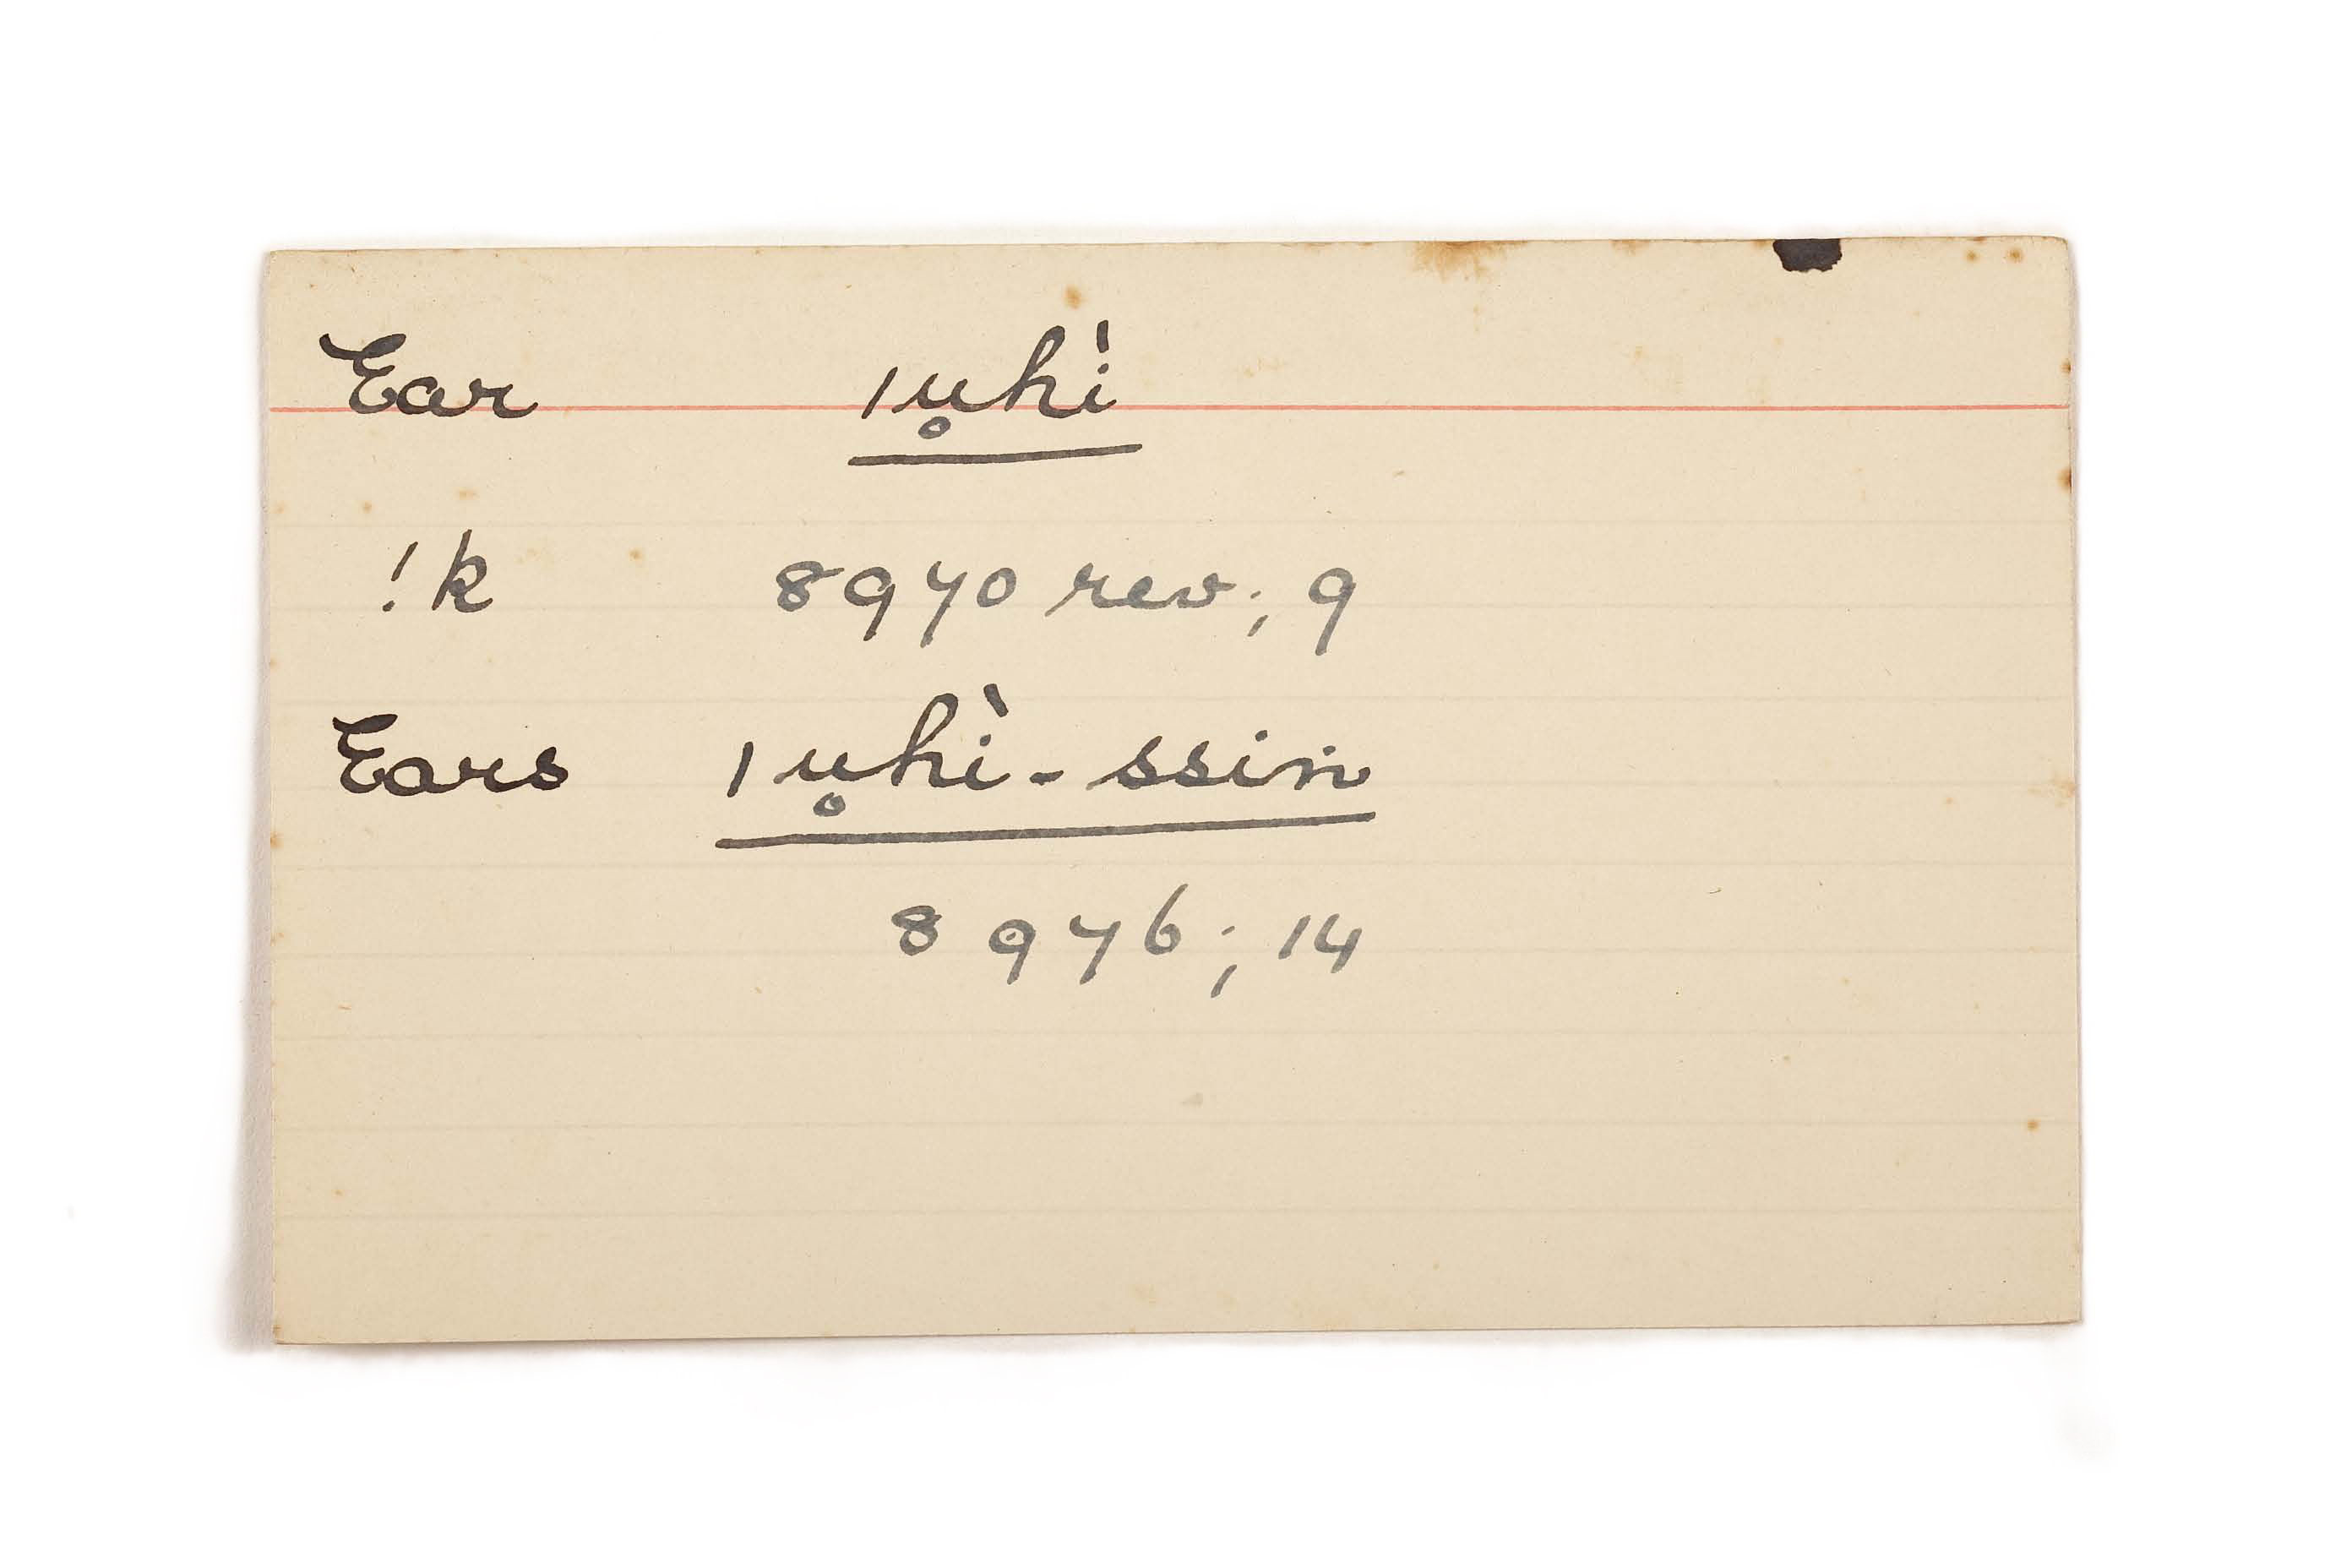 Ear ǀu̥hì
!k 8970 rev; 9
Ears ǀu̥hì-ssin
8976; 14